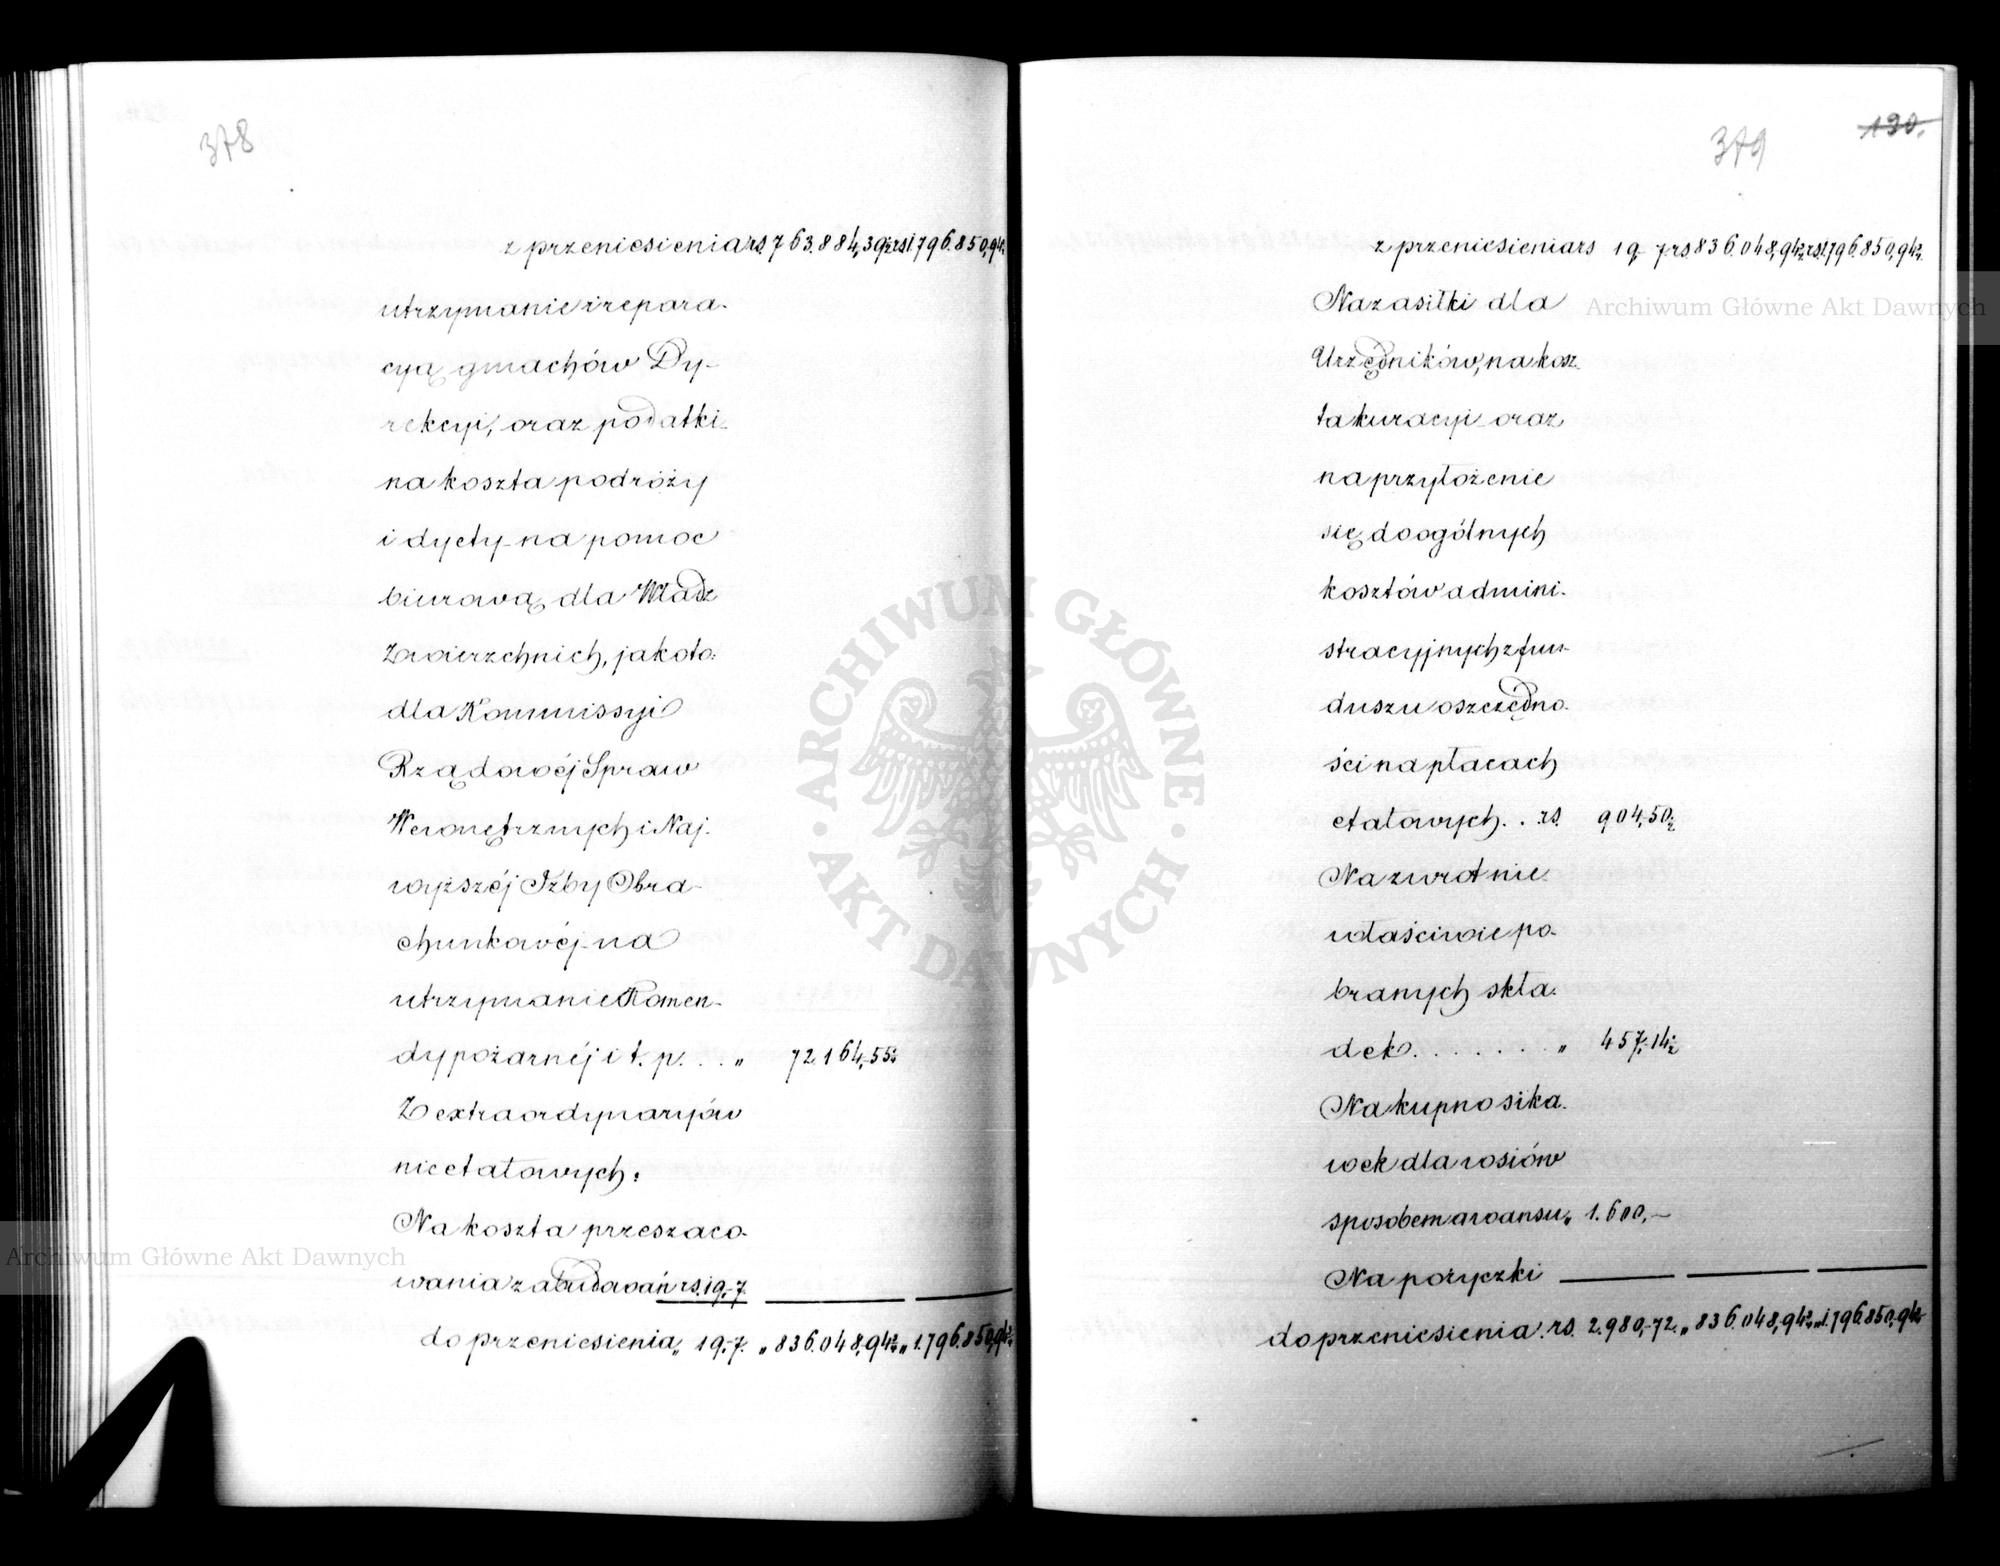 378
z przeniesienia rs. 763.884,39½ rs. 1.796.850,94½
utrzymanie i repara-
cyą gmachów Dy-
rekcyi, oraz podatki-
na koszta podróży
i dyety - na pomoc
biurową dla Władz
Zwierzchnich, jako to:
dla Kommissyi
Rządowéj Spraw
Wewnętrznych i Naj-
wyższéj Izby Obra-
chunkowéj - na
utrzymanie Komen-
dy pożarnéj i t. p. . . „ 72.164,55½
Z extraordynaryów
nieetatowych:
Na koszta przeszaco-
wania zabudowań rs. 19,-7.
do przeniesienia „ 19,-7. „ 836.048,94½ „ 1.796.850,94½
379
130.
z przeniesienia rs 19,-7 rs. 836.048,94½ rs. 1.796.850,94½
Na zasiłki dla
Urzędników, na kosz-
ta kuracyi - oraz
na przyłożenie
się do ogólnych
kosztów admini-
stracyjnych z fun-
duszu oszczędno-
ści na płacach
etatowych . . rs. 904,50½
Na zwrot nie-
właściwie po-
branych skła-
dek . . . . . . . „ 457,-14½
Na kupno sika-
wek dla wsiów
sposobem awansu „ 1.600,—
Na pożyczki
do przeniesienia rs. 2.980,-72. „ 836.048,94½ „ 1.796.850,94½
Archiwum Główne Akt Dawnych
Archiwum Główne Akt Dawnych
ARCHIWUM GŁÓWNE
AKT DAWNYCH